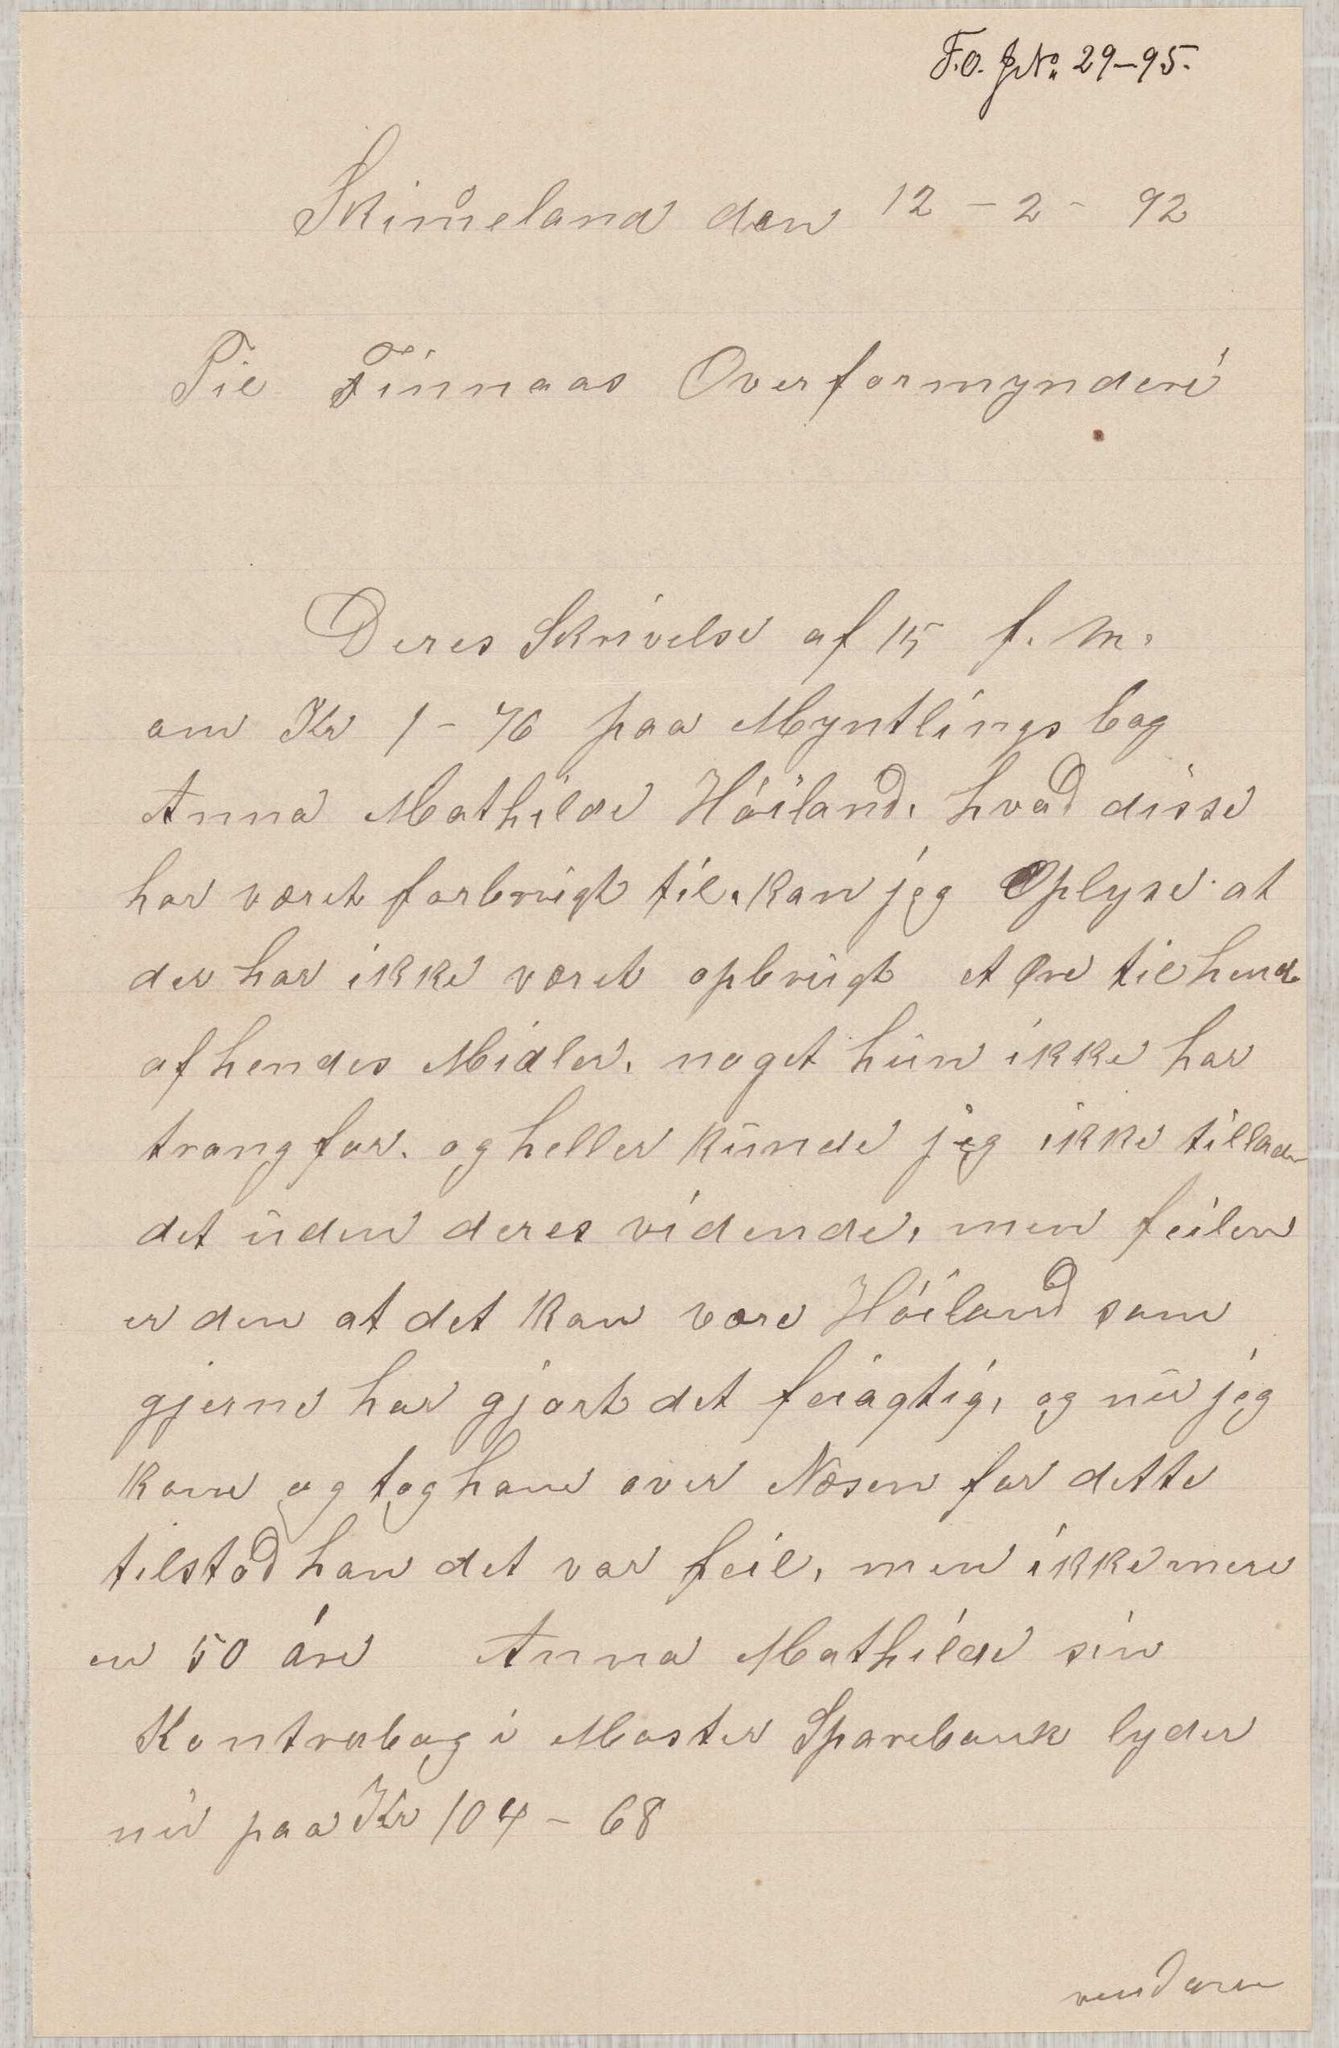 F.O. JNo. 29-95.
Skimeland den 12 - 2 - 92
Til Finnaas Overformynderi
Deres Skrivelse af 15 f. m.
om Kr 1-76 paa Myntlings bog
Anna Mathilde Höiland, hvad disse
har været forbrugt til. kan jeg Oplyse at
der har ikke været opbrugt et Øre til hende
af hendes Midler, noget hun ikke har
trang for. og heller kunde jeg ikke tillade
det uden deres vidende, men feilen
er den at det kan være Höiland som
gjerne har gjort det feiagtig, og nu jeg
kom og tog ham over Næsen for dette
tilstod han det var feil, men ikke mere
en 50 öre Anna Mathilde sin
Kontrabog i Moster Sparebank lyder
nu paa Kr 104-68